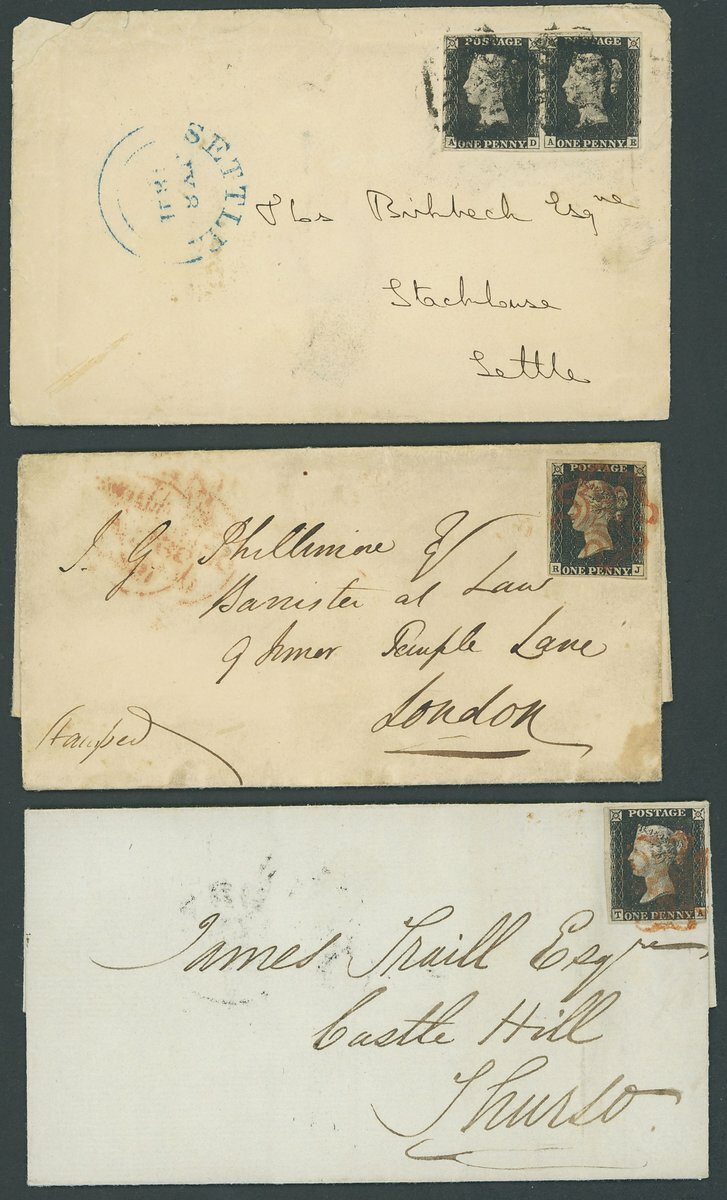 POSTAGE
A ONE PENNY D
A ONE PENNY E
SETTLE
Thos Birkbeck Esqre
Stackhouse
Settle
POSTAGE
R ONE PENNY J
J. G Phillimore Esq
Barrister at Law
9 Inner Temple Lane
London
Stamped
POSTAGE
T ONE PENNY A
James Traill Esqre
Castle Hill
Thurso